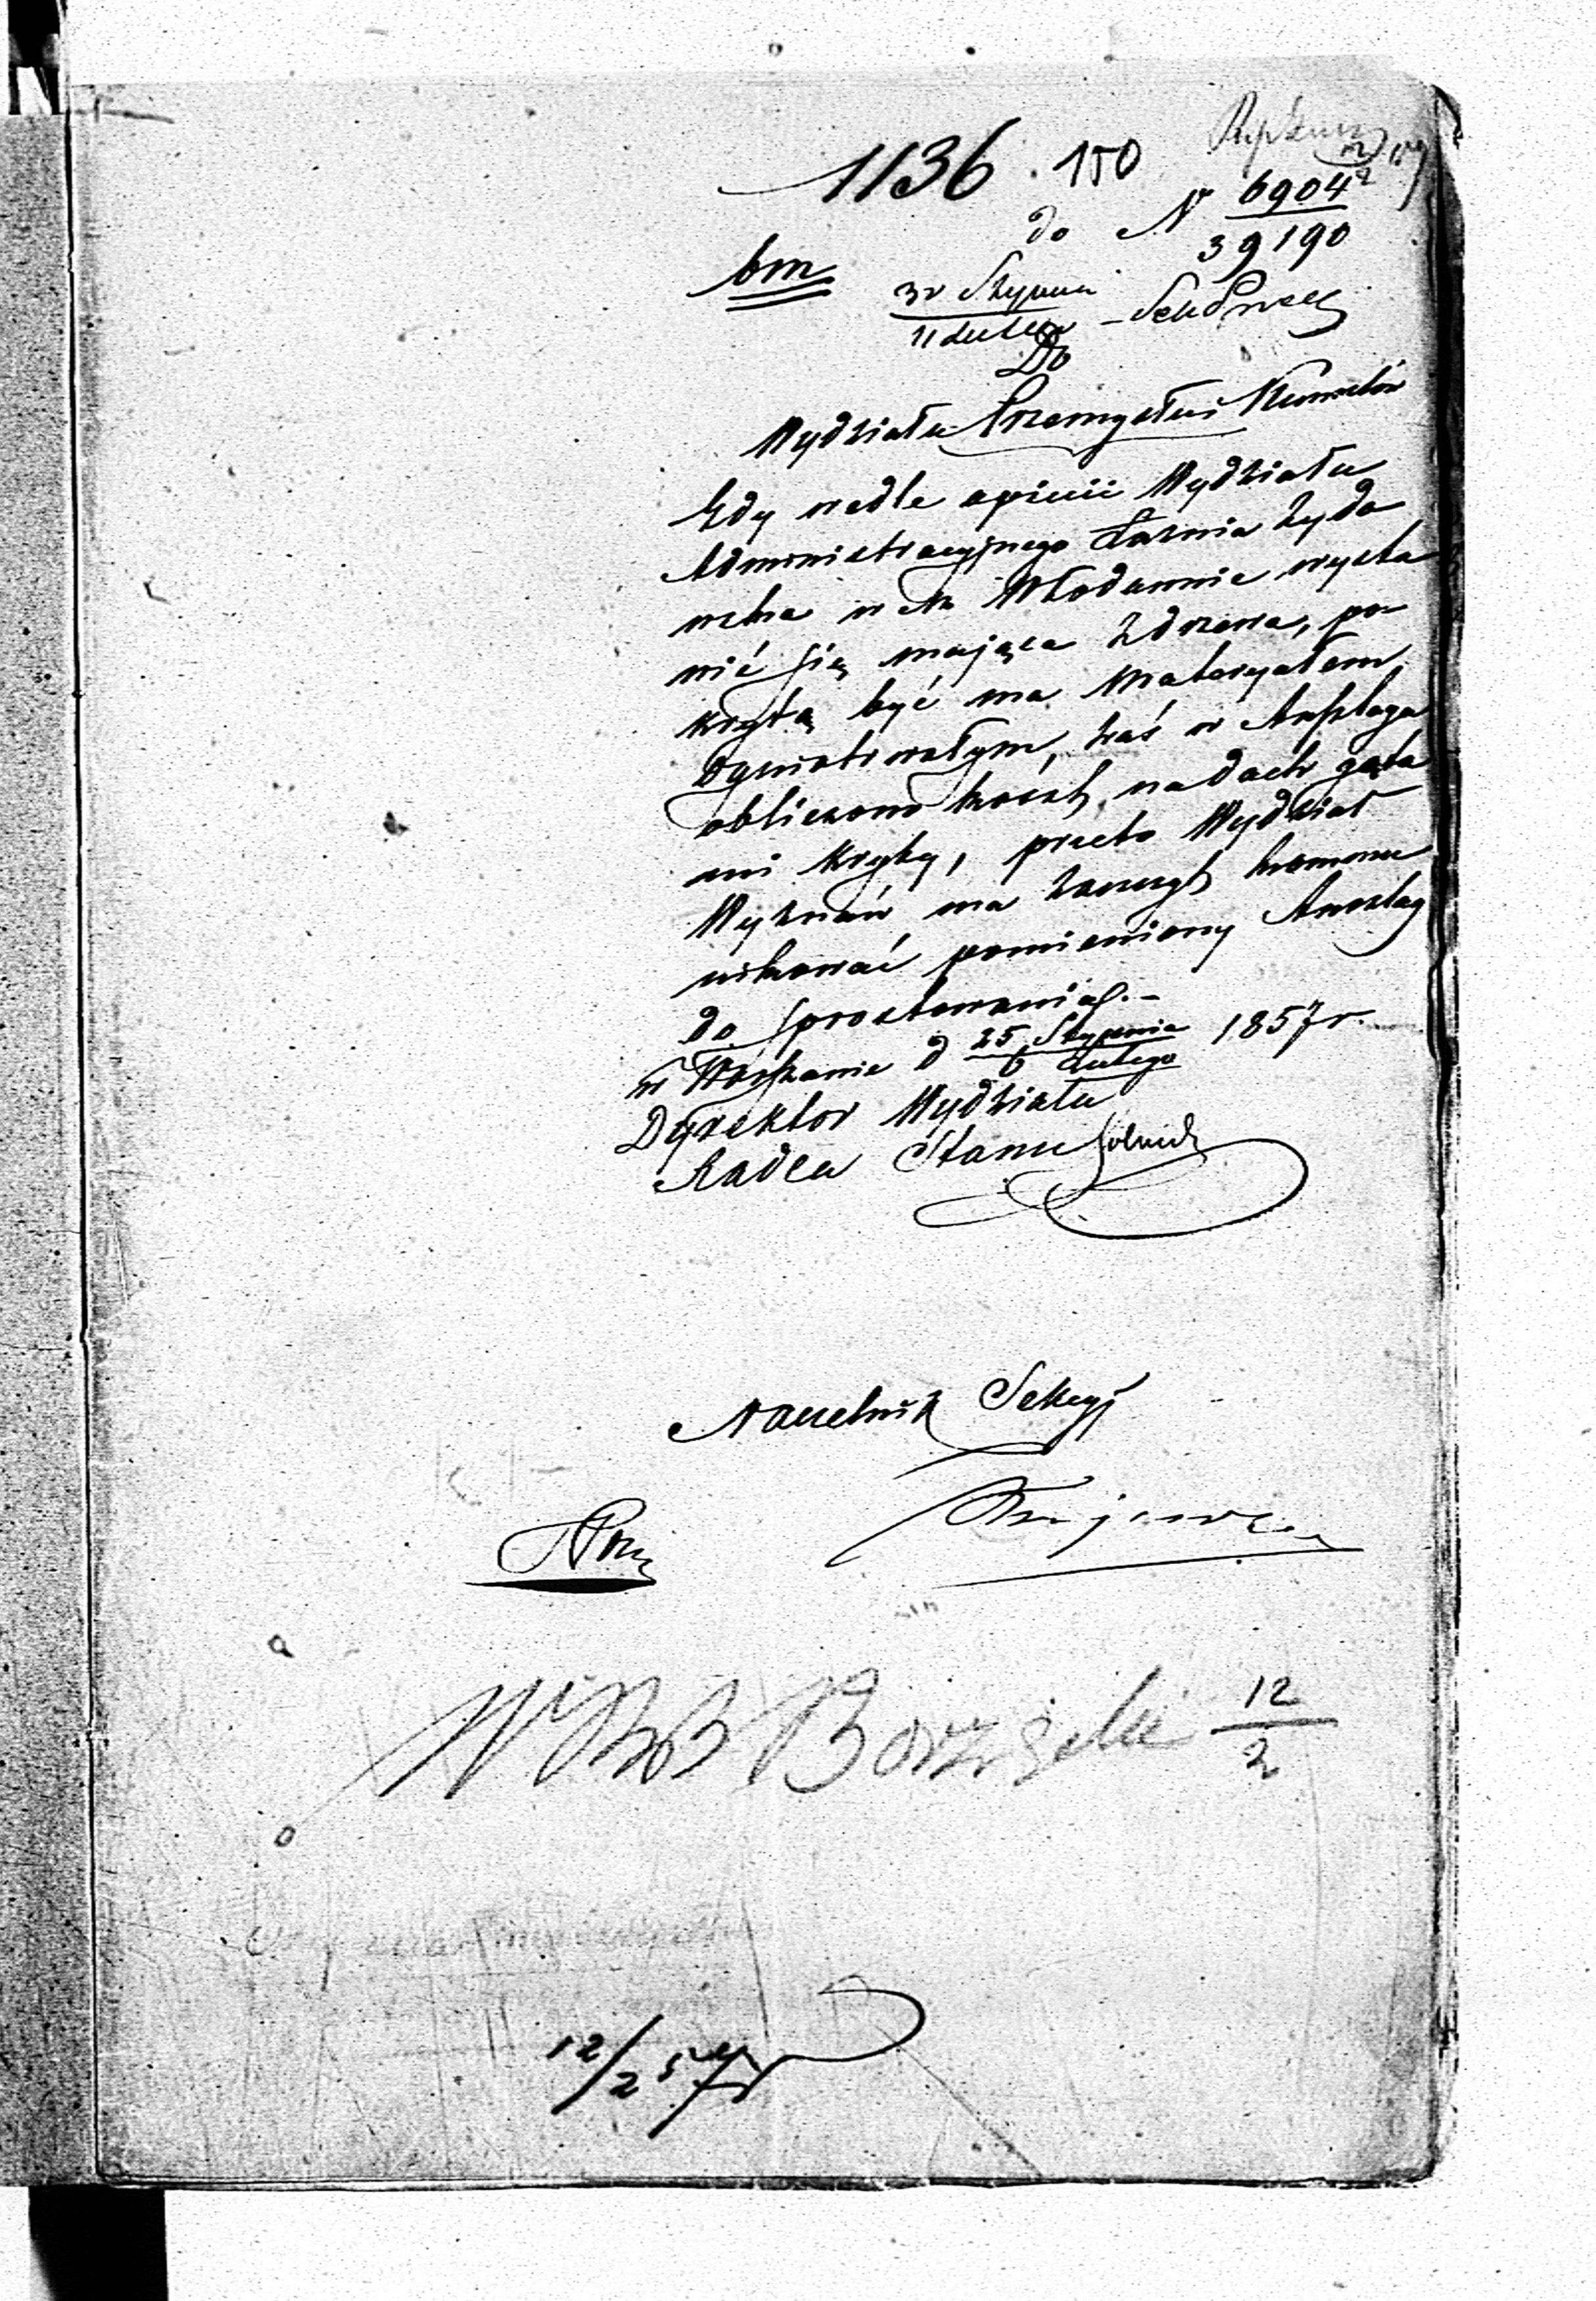 1136. 150
do N 6904
39190
bm
30 Stycznia
11 Lutego
Do
Wydziału Przemysłu i Kunsztów
Gdy wedle opinii Wydziału
Administracyjnego Łaźnia żydo
wska w M. Włodawie wysta
wić się mająca z drzewa, po
krytą być ma materyałem
ogniotrwałym, zaś w Anszlagu
obliczono koszt na dach gąta
mi kryty, przeto Wydział
Wyznań ma zaszczyt kommu
nikować pomieniony Anszlag
do sprostowania.-
w Warszawie d 25 Stycznia 1857 r.
6 Lutego
Dyrektor Wydziału
Radca Stanu
Naczelnik Sekcyi
12
2
12/2 57